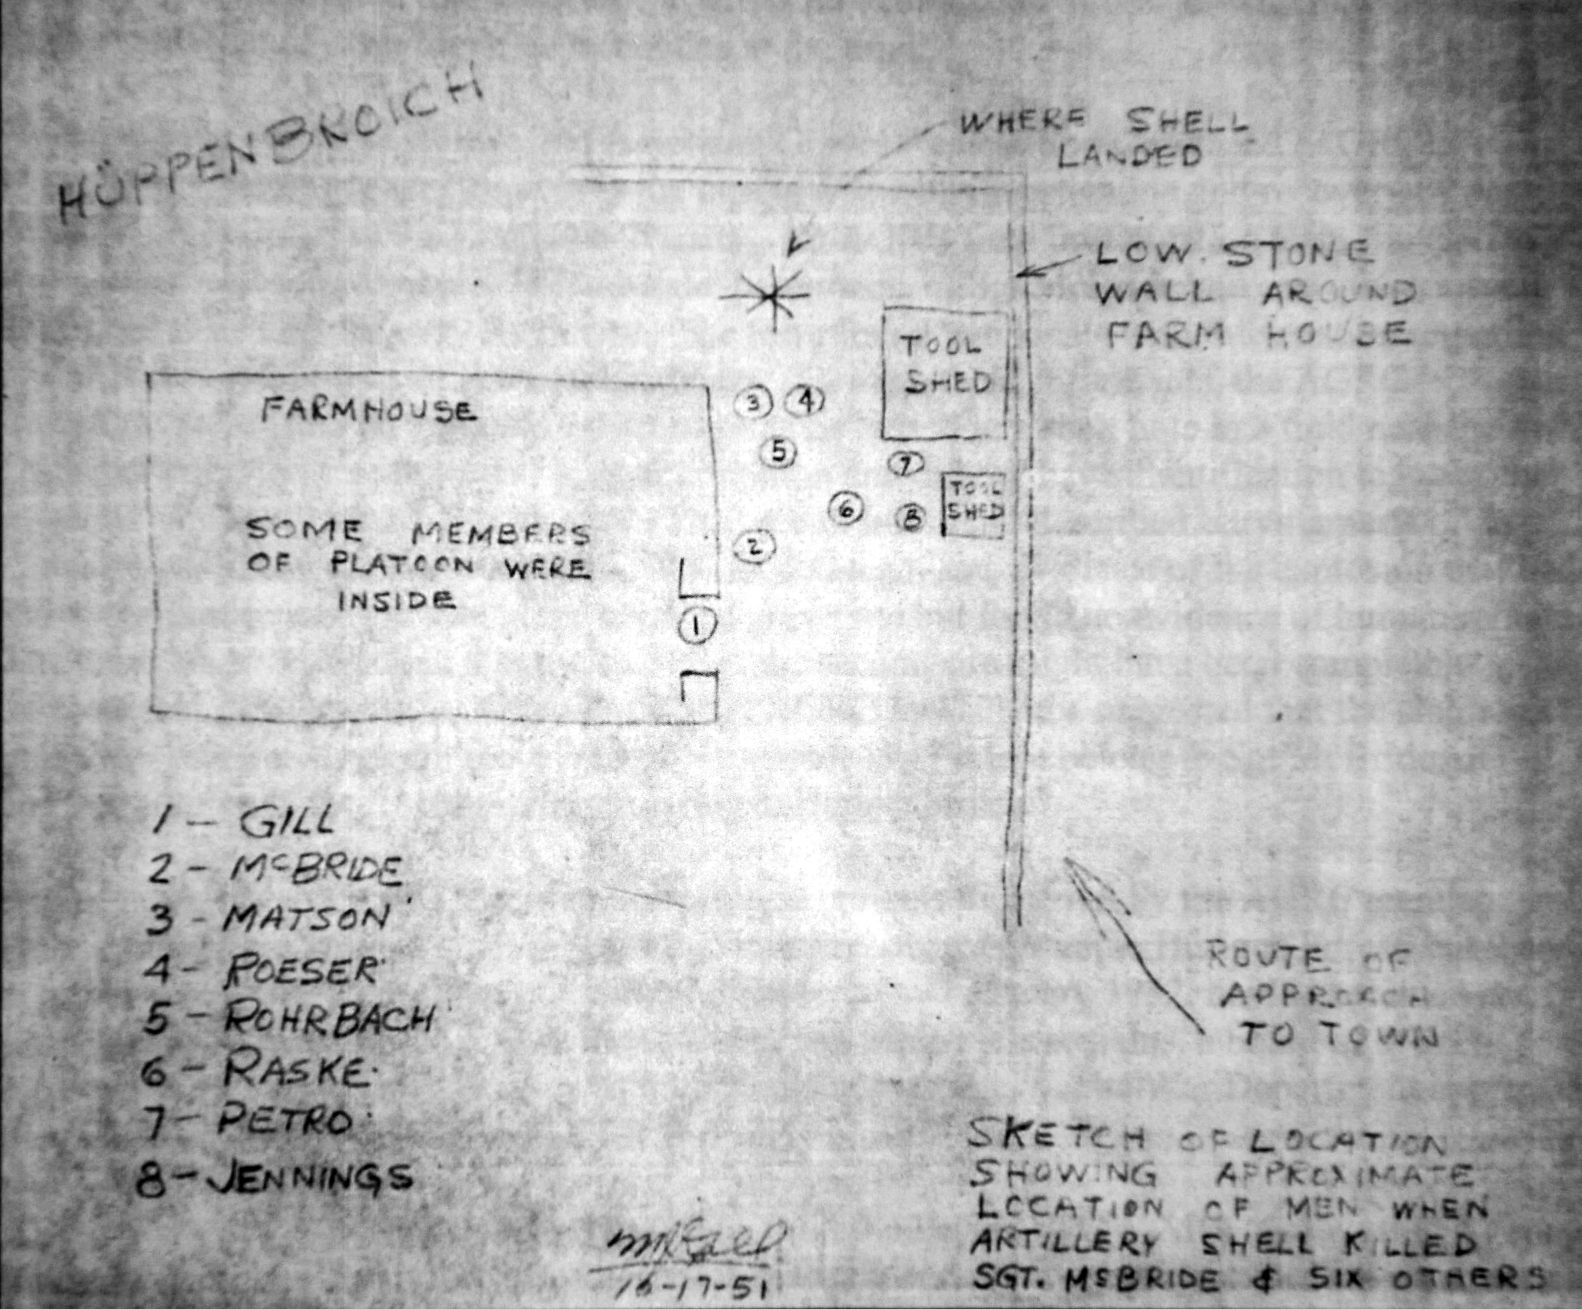 HÜPPENBROICH
WHERE SHELL
LANDED
LOW STONE
WALL AROUND
FARM HOUSE
TOOL
SHED
FARMHOUSE
3 4
5
7
TOOL
SHED
6 8
2
SOME MEMBERS
OF PLATOON WERE
INSIDE
1
1 - GILL
2 - McBRIDE
3 - MATSON
4 - ROESER
5 - ROHRBACH
6 - RASKE
7 - PETRO
8 - JENNINGS
ROUTE OF
APPROACH
TO TOWN
SKETCH OF LOCATION
SHOWING APPROXIMATE
LOCATION OF MEN WHEN
ARTILLERY SHELL KILLED
SGT. McBRIDE & SIX OTHERS
-17-51